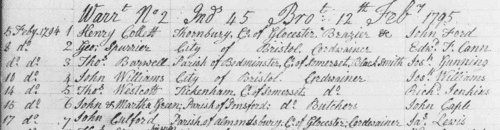 Warrt No 2 Ind 45 Brot 12th Feby 1795
5 Feby 1794 1 Henry Collett Thornbury, Co of Glocester Brazier &c John Ford
8 do 2 Geo: Spurrier City of Bristol Cordwainer Edwd T. Cann
do do 3 Thos Barwell Parish of Bedminster, Co of Somerset, Black Smith Jos: Gunning
10 do 4 John Williams City of Bristol Cordwainer Jos: Williams
14 do 5 Thos Westcott Tickenham, Co of Somerset do Richd Jenkins
15 do 6 John & Martha Green; Parish of Durs­ford: do Butchers John Cople
17 do 7 John Culford Parish of Almondsbury; Co of Glocester; Cordwainer Jas Lewis